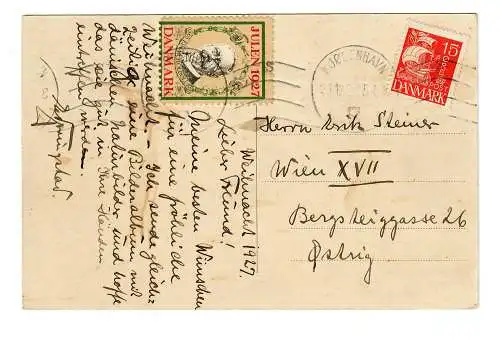 JULEN 1927
DANMARK
KØBENHAVN
15
DANMARK
Weihnacht 1927.
Lieber Freund!
Meine besten Wünschen
für eine fröhliche
Weihnacht. – Ich sende gleich-
zeitig eine Bilderalbum mit
dänischen Naturbilder und hoffe
das sie gut in Ihre Händen
eintreffen werden.
Herrn Fritz Steiner
Wien XVII
Bergsteiggasse 26
Østrig